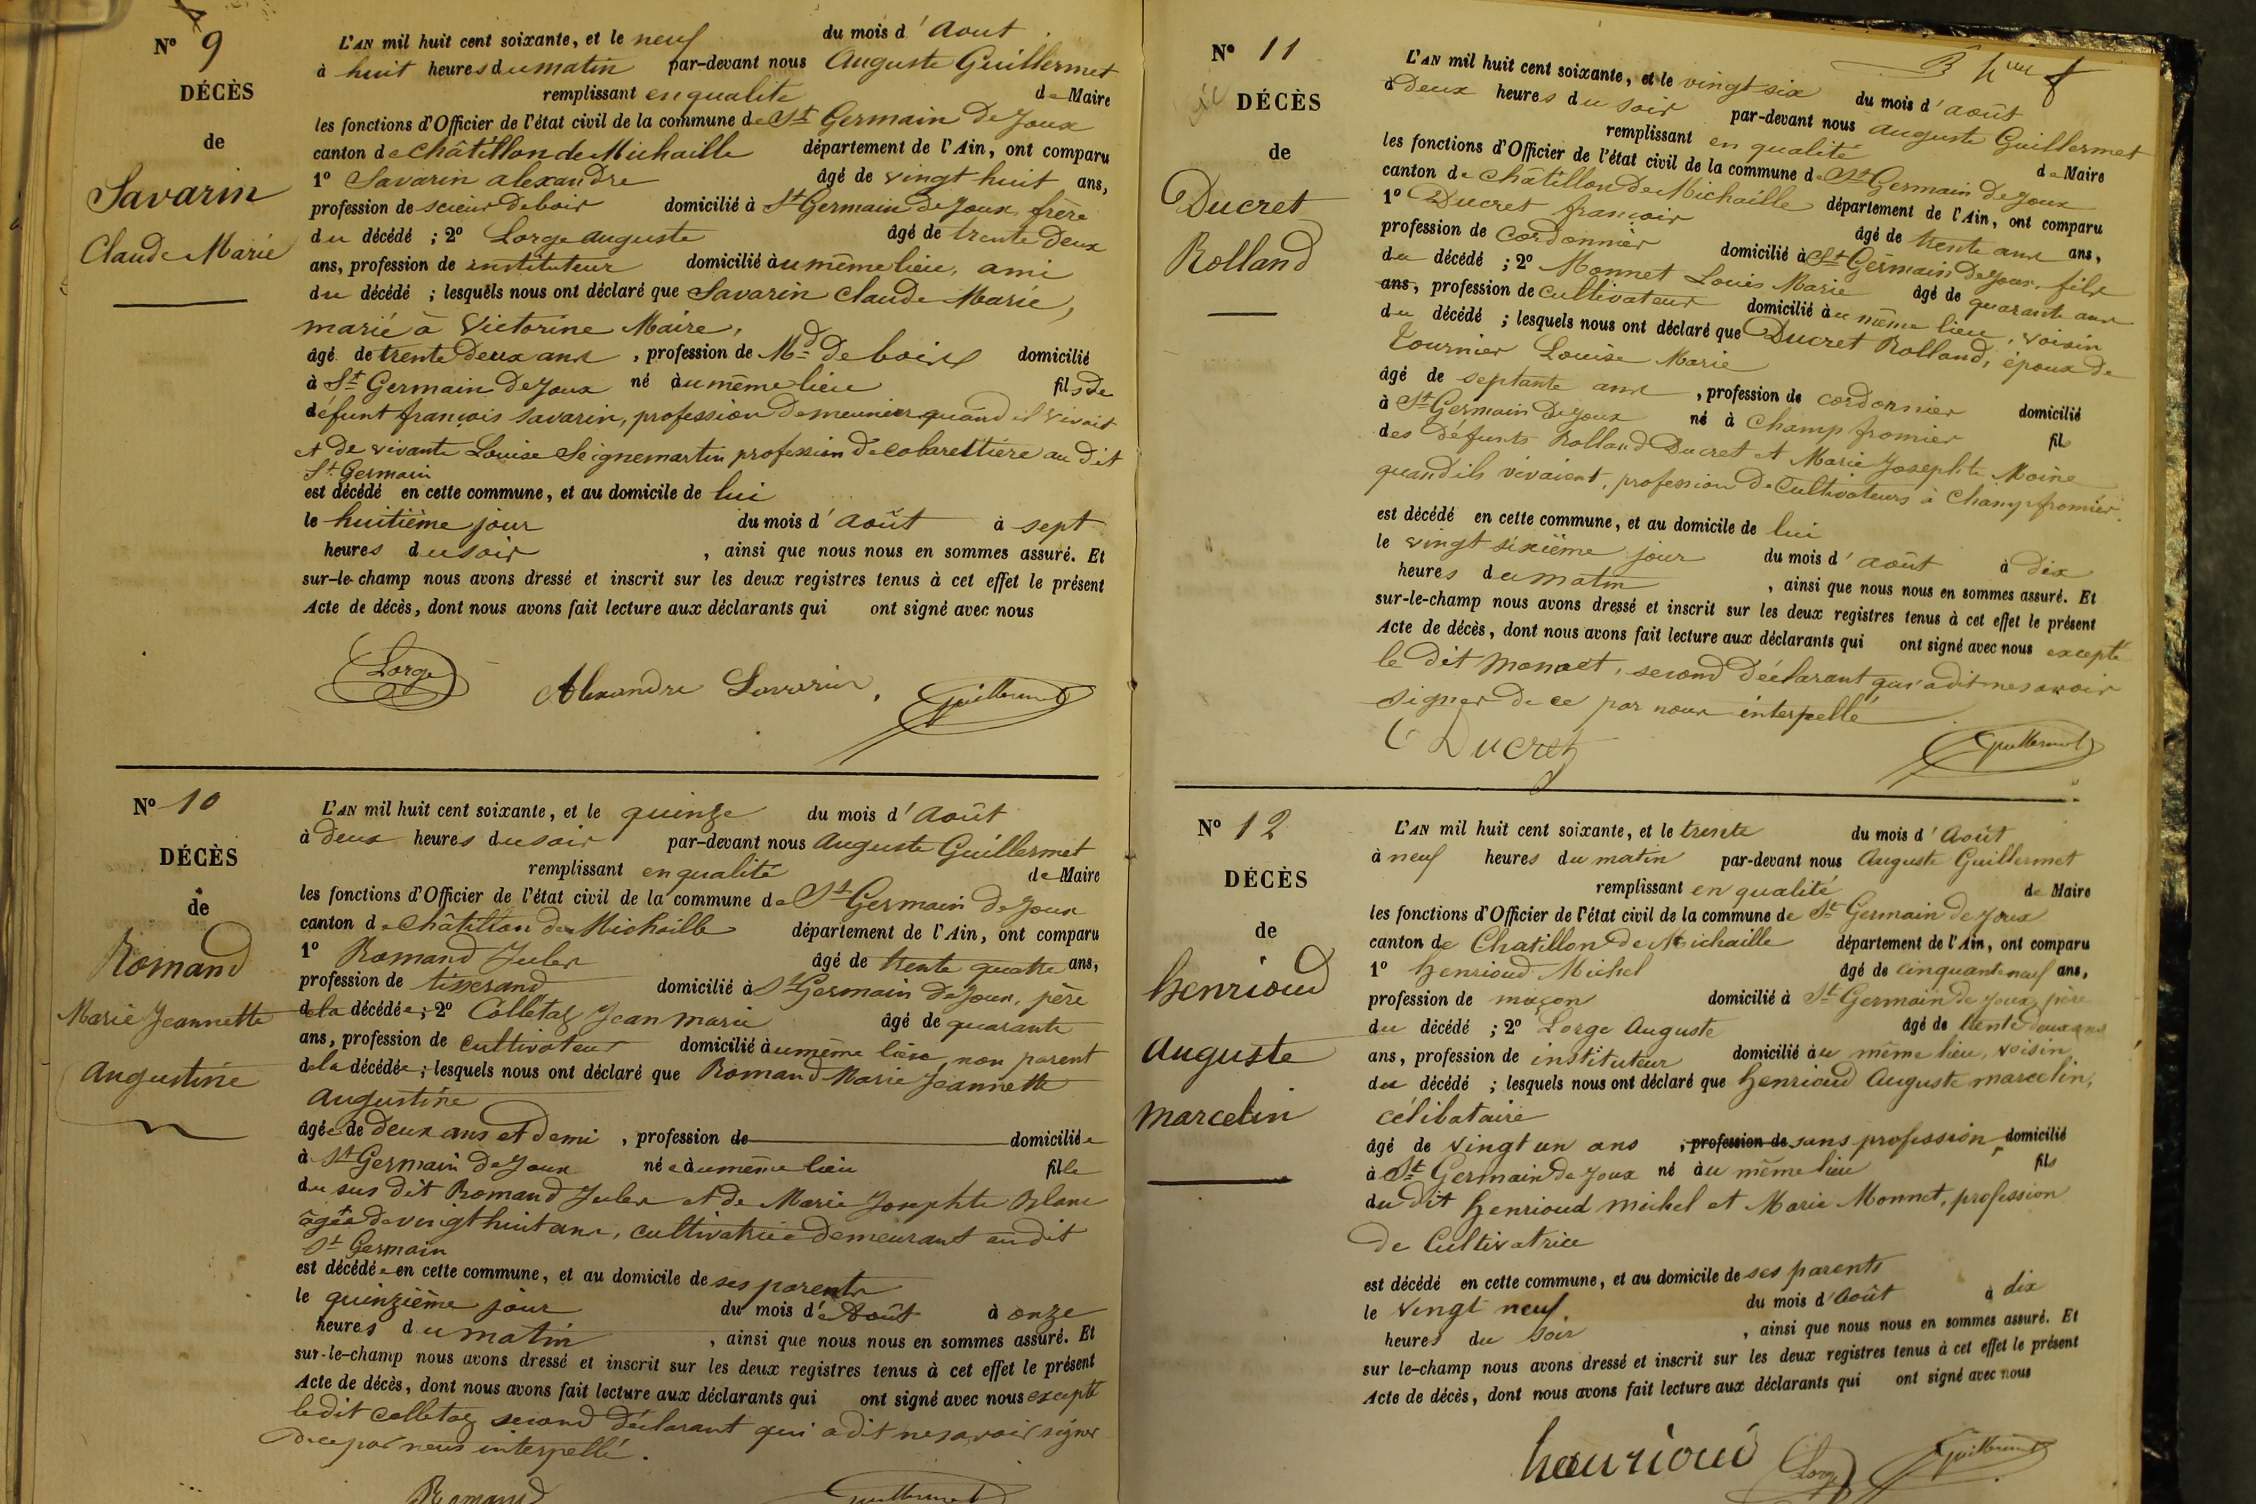 N° 9
DÉCÈS
de
Savarin
Claude Marie
L'AN mil huit cent soixante, et le neuf du mois d'Aout
à huit heures du matin par-devant nous Auguste Guillermet
remplissant en qualité de Maire
les fonctions d'Officier de l'état civil de la commune de St Germain de Joux
canton de Châtillon de Michaille département de l'Ain, ont comparu
1° Savarin alexandre âgé de vingt huit ans,
profession de scieur de bois domicilié à St Germain de Joux, frère
du décédé ; 2° Lorge auguste âgé de trente deux
ans, profession de instituteur domicilié au même lieu, ami
du décédé ; lesquels nous ont déclaré que Savarin Claude Marie,
marié à Victorine Maire,
âgé de trente deux ans, profession de Md de bois domicilié
à St Germain de Joux né au même lieu fils de
défunt françois Savarin, profession de meunier quand il vivait
et de vivante Louise Seignemartin profession de cabarettière au dit
St Germain
est décédé en cette commune, et au domicile de lui
le huitième jour du mois d'Août à sept
heures du soir, ainsi que nous nous en sommes assuré. Et
sur-le-champ nous avons dressé et inscrit sur les deux registres tenus à cet effet le présent
Acte de décès, dont nous avons fait lecture aux déclarants qui ont signé avec nous
Lorge Alexandre Savarin. Guillermet
N° 10
DÉCÈS
de
Romand
Marie Jeannette
Augustine
L'AN mil huit cent soixante, et le quinze du mois d'Août
à deux heures du soir par-devant nous Auguste Guillermet
remplissant en qualité de Maire
les fonctions d'Officier de l'état civil de la commune de St Germain de Joux
canton de Châtillon de Michaille département de l'Ain, ont comparu
1° Romand Jules âgé de trente quatre ans,
profession de tisserand domicilié à St Germain de Joux, père
de la décédée ; 2° Colletaz Jean marie âgé de quarante
ans, profession de cultivateur domicilié au même lieu, non parent
de la décédée ; lesquels nous ont déclaré que Romand Marie Jeannette
Augustine
âgée de deux ans et demi, profession de domiciliée
à St Germain de Joux née au même lieu fille
du sus dit Romand Jules et de Marie Josephte Blanc
âgée de vingt huit ans, cultivatrice demeurant au dit
St Germain
est décédée en cette commune, et au domicile de ses parents
le quinzième jour du mois d'Août à onze
heures du matin, ainsi que nous nous en sommes assuré. Et
sur-le-champ nous avons dressé et inscrit sur les deux registres tenus à cet effet le présent
Acte de décès, dont nous avons fait lecture aux déclarants qui ont signé avec nous excepté
le dit Colletaz second déclarant qui a dit ne savoir signer
de ce par nous interpellé.
Romand Guillermet
N° 11
DÉCÈS
de
Ducret
Rolland
L'AN mil huit cent soixante, et le vingt six du mois d'août
à Deux heures du soir par-devant nous Auguste Guillermet
remplissant en qualité de Maire
les fonctions d'Officier de l'état civil de la commune de St Germain de Joux
canton de Châtillon de Michaille département de l'Ain, ont comparu
1° Ducret françois âgé de trente ans ans,
profession de cordonnier domicilié à St Germain de Joux, fils
du décédé ; 2° Monnet Louis Marie âgé de quarante ans
ans, profession de cultivateur domicilié au même lieu, voisin
du décédé ; lesquels nous ont déclaré que Ducret Rolland, époux de
Tournier Louise Marie
âgé de septante ans, profession de cordonnier domicilié
à St Germain de Joux né à Champfromier fil
des défunts Rolland Ducret et Marie Josephte Moine
quand ils vivaient, profession de Cultivateurs à Champfromier.
est décédé en cette commune, et au domicile de lui
le vingt sixième jour du mois d'août à dix
heures du matin, ainsi que nous nous en sommes assuré. Et
sur-le-champ nous avons dressé et inscrit sur les deux registres tenus à cet effet le présent
Acte de décès, dont nous avons fait lecture aux déclarants qui ont signé avec nous excepté
le dit Monnet, second déclarant qui a dit ne savoir
signer de ce par nous interpellé
Ducret Guillermet
N° 12
DÉCÈS
de
henrioud
auguste
marcelin
L'AN mil huit cent soixante, et le trente du mois d'Août
à neuf heures du matin par-devant nous Auguste Guillermet
remplissant en qualité de Maire
les fonctions d'Officier de l'état civil de la commune de St Germain de Joux
canton de Chatillon de Michaille département de l'Ain, ont comparu
1° henrioud Michel âgé de cinquante neuf ans,
profession de maçon domicilié à St Germain de Joux, père
du décédé ; 2° Lorge Auguste âgé de trente deux ans
ans, profession de instituteur domicilié au même lieu, voisin
du décédé ; lesquels nous ont déclaré que henrioud Auguste marcelin,
célibataire
âgé de vingt un ans, profession de sans profession, domicilié
à St Germain de Joux né au même lieu fils
du dit henrioud michel et Marie Monnet, profession
de Cultivatrice
est décédé en cette commune, et au domicile de ses parents
le vingt neuf du mois d'Août à dix
heures du soir, ainsi que nous nous en sommes assuré. Et
sur le-champ nous avons dressé et inscrit sur les deux registres tenus à cet effet le présent
Acte de décès, dont nous avons fait lecture aux déclarants qui ont signé avec nous
henrioud Lorge Guillermet